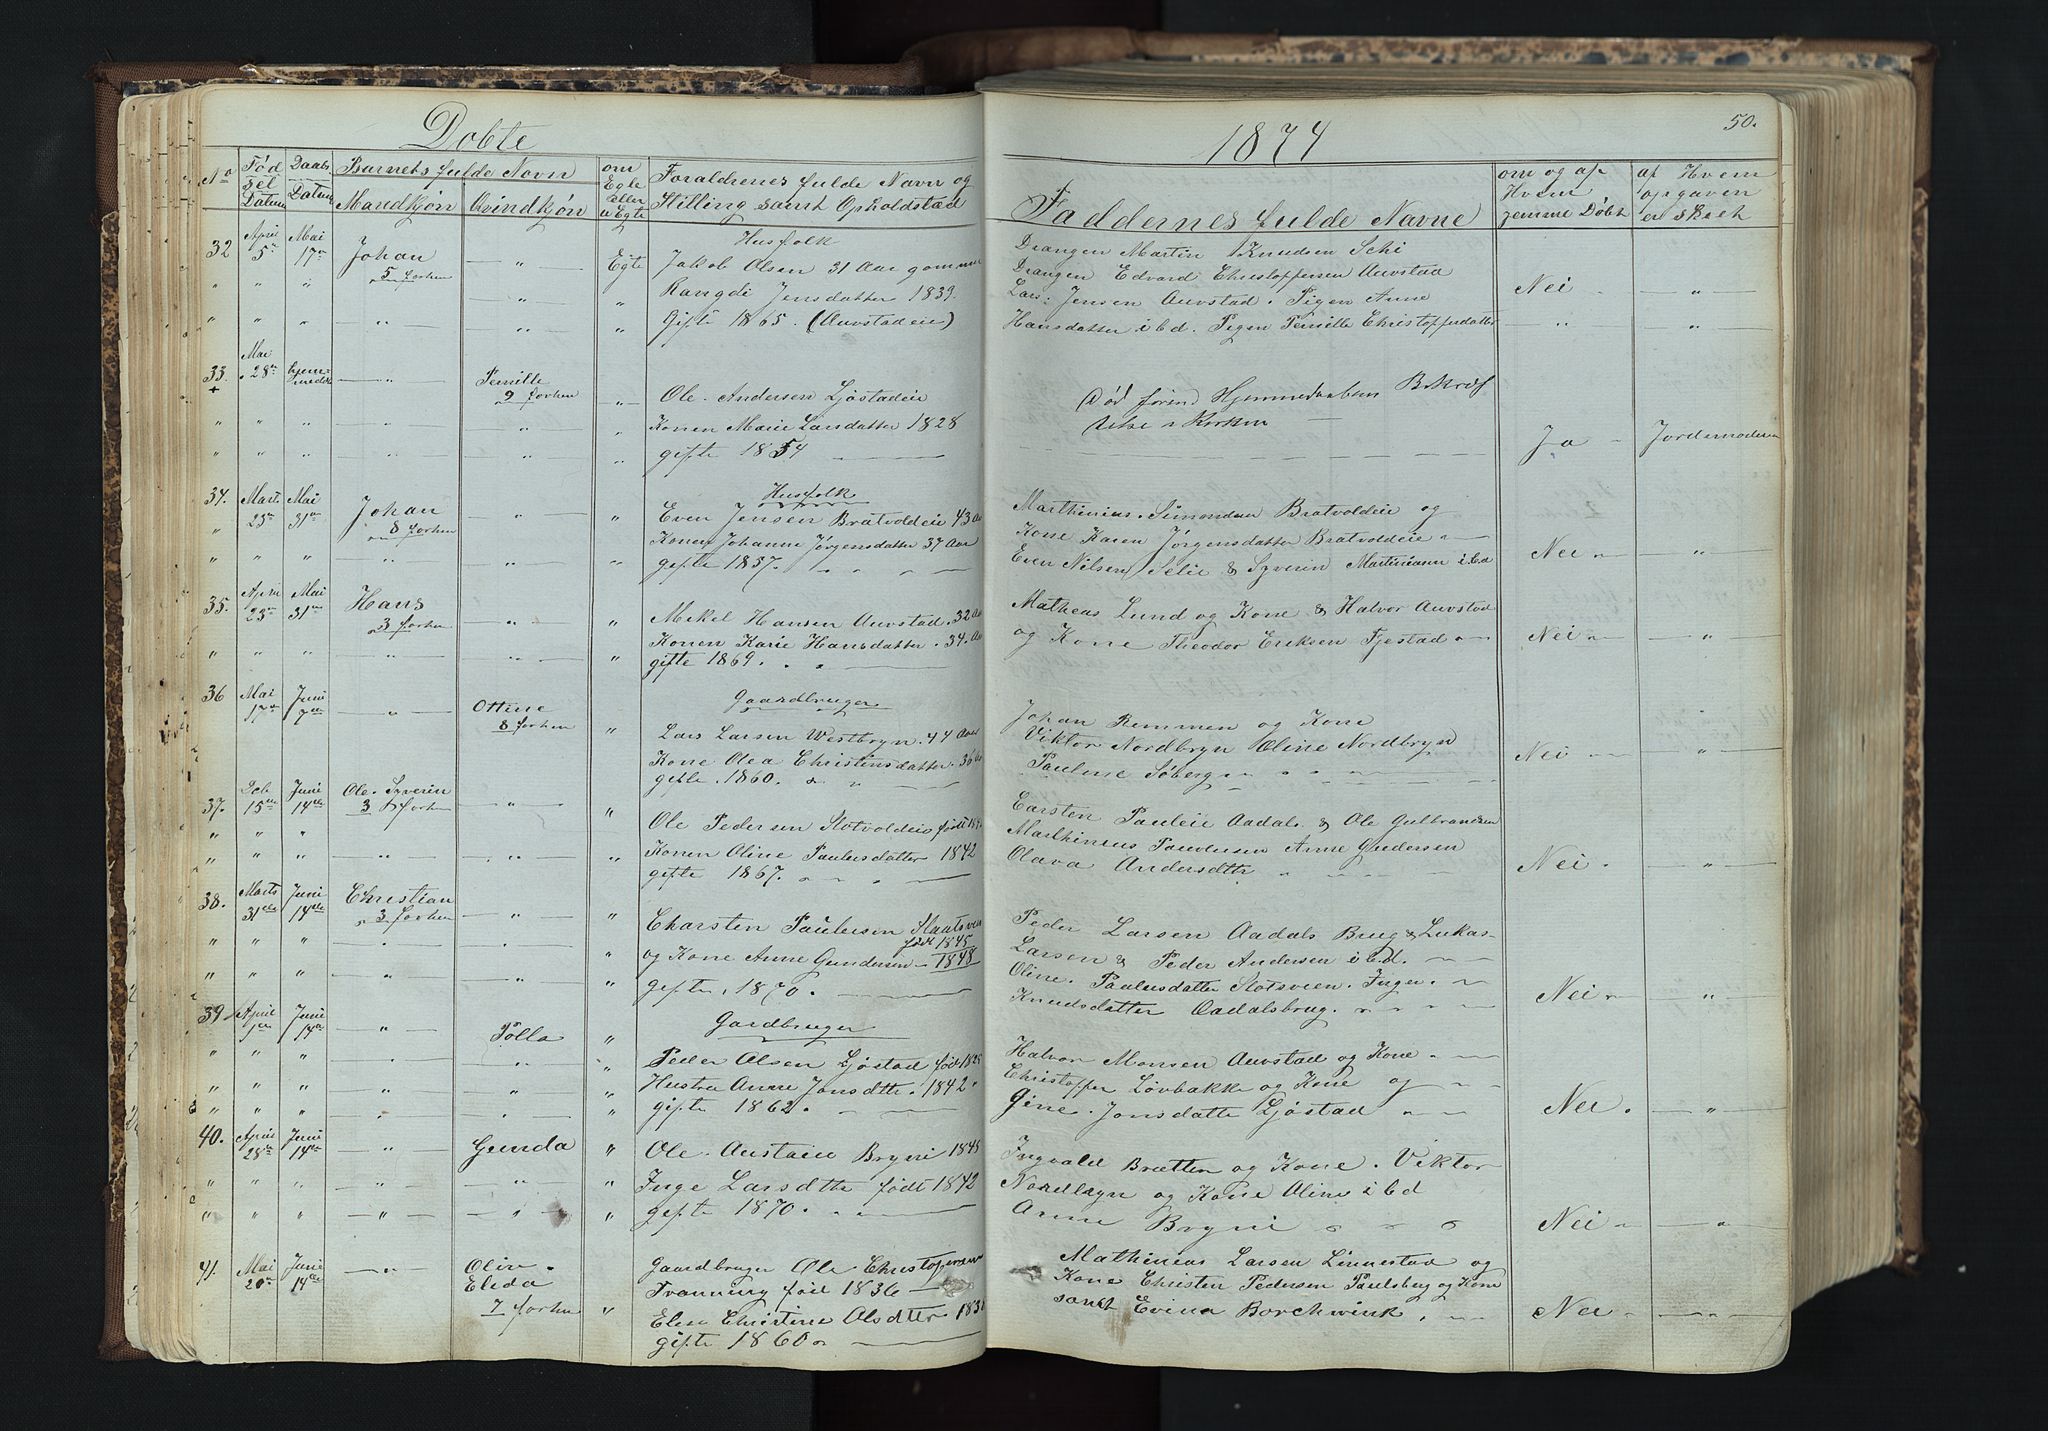 Døbte
1874
50.
No
Fød
sel
Datum
Daabs
Datum
Barnets fulde Navn
Mandkjøn
Qvindkjøn
om
Egte
eller
uEgte
Foraldrenes fulde Navn og
Stilling samt Opholdstad
Faddernes fulde Navne
om og af
Hvem
jemme Døbt
af Hvem
opgaven
er skeet
32 April 5te Mai 17de Johan
5 forhen
Egte
Husfolk
Jakob Olsen 31 Aar gammel
Rangdi Jensdatter 1839.
Gift 1865. (Auvstadeie)
Drangen Martin Knudsen
Drangen Edvard Christoffersen Auvstad
Lars Jensen Auvstad. Pigen Anne
Hansdatter ibd. Pigen Pernille Christoffersdatter
Nei
33. Mai 28de hjem-
medøbt
Pernille
9 forhen
Ole Andersen Ljøstadeie
Konen Marie Larsdatter 1828
gifte 1854
Død førend Hjemmedaaben Bekræf
telse i Kirken
Ja
Jordemoderen
34. Mart. 23de Mai 31te Johan
8 forhen
Husfolk
Even Jensen Bratvoldeie 43 Aar
Konen Johanne Jørgensdatter 37 Aar
gifte 1857.
Marthinius Simonsen Bratvoldeie og
Kone Karen Jørgensdatter Bratvoldeie
Even Nilsen Selie & Syverin Martiniusen ibd
Nei
35. April 23de Mai 31te Hans
3 forhen
Mikel Hansen Auvstad. 32 Aar
Konen Karie Hansdatter. 34. Aar
gifte 1869.
Matheas Lund og Kone & Halvor Auvstad
og Kone Theodor Eriksen Fjestad
Nei
36 Mai 17de Juni 7de
Ottine
8 forhen
Gaardbruger
Lars Larsen Westbryn. 44 Aar
Kone Olea Christensdatter. 36 Aar
gifte. 1860.
Johan Remmen og Kone
Viktor Nordbryn Oline Nordbryn
Pauline Søberg
Nei
37. Feb 15de Juni 14de Ole Syverin
3 forhen
Ole Pedersen Slotvoldeie født
Konen Oline Paulusdatter 1842
gifte 1867.
Carsten Pauleie Aadals & Ole Gulbrandsen
Marthinius Paulusen Anne Gundersen
Olava Andersdtte
Nei
38. Marts 31de Juni 14de Christian
3 forhen
Charsten Paulusen
født 1845
og Kone Anne Gundersen 1848
gifte. 1870.
Peder Larsen Aadals Brug & Lukas
Larsen & Peder Andersen ibd.
Oline. Paulusdatter Slotsveen. Inger.
Knudsdatter Aadalsbrug.
Nei
39 April 1de Juni 14de
Polla
Gaardbruger
Peder Olsen Ljøstad født
Hustru Anne Jonsdttr. 1842
gifte 1862.
Halvor Monsen Auvstad og Kone
Christopher Løvbakke og Kone og
Gine. Jonsdatte Ljøstad
Nei
40. April 28de Juni 14de
Gunda
Ole Bryni 1845
Inge Larsdttr født 1842
gifte 1870.
Ingvald Brætten og Kone. Viktor
Nordbryn og Kone Oline ibd
Anne Bryni
Nei
41. Mai 20de Juni 14de
Olin
Elida
7 forhen
Gaardbruger Ole Christoffersen
Tranning född 1836
Elen Christine Olsdtter
gifte 1860
Mathinius Larsen Linnestad og
Kone Christen Pedersen Paulsberg og Kone
samt Evina Borchwink.
Nei